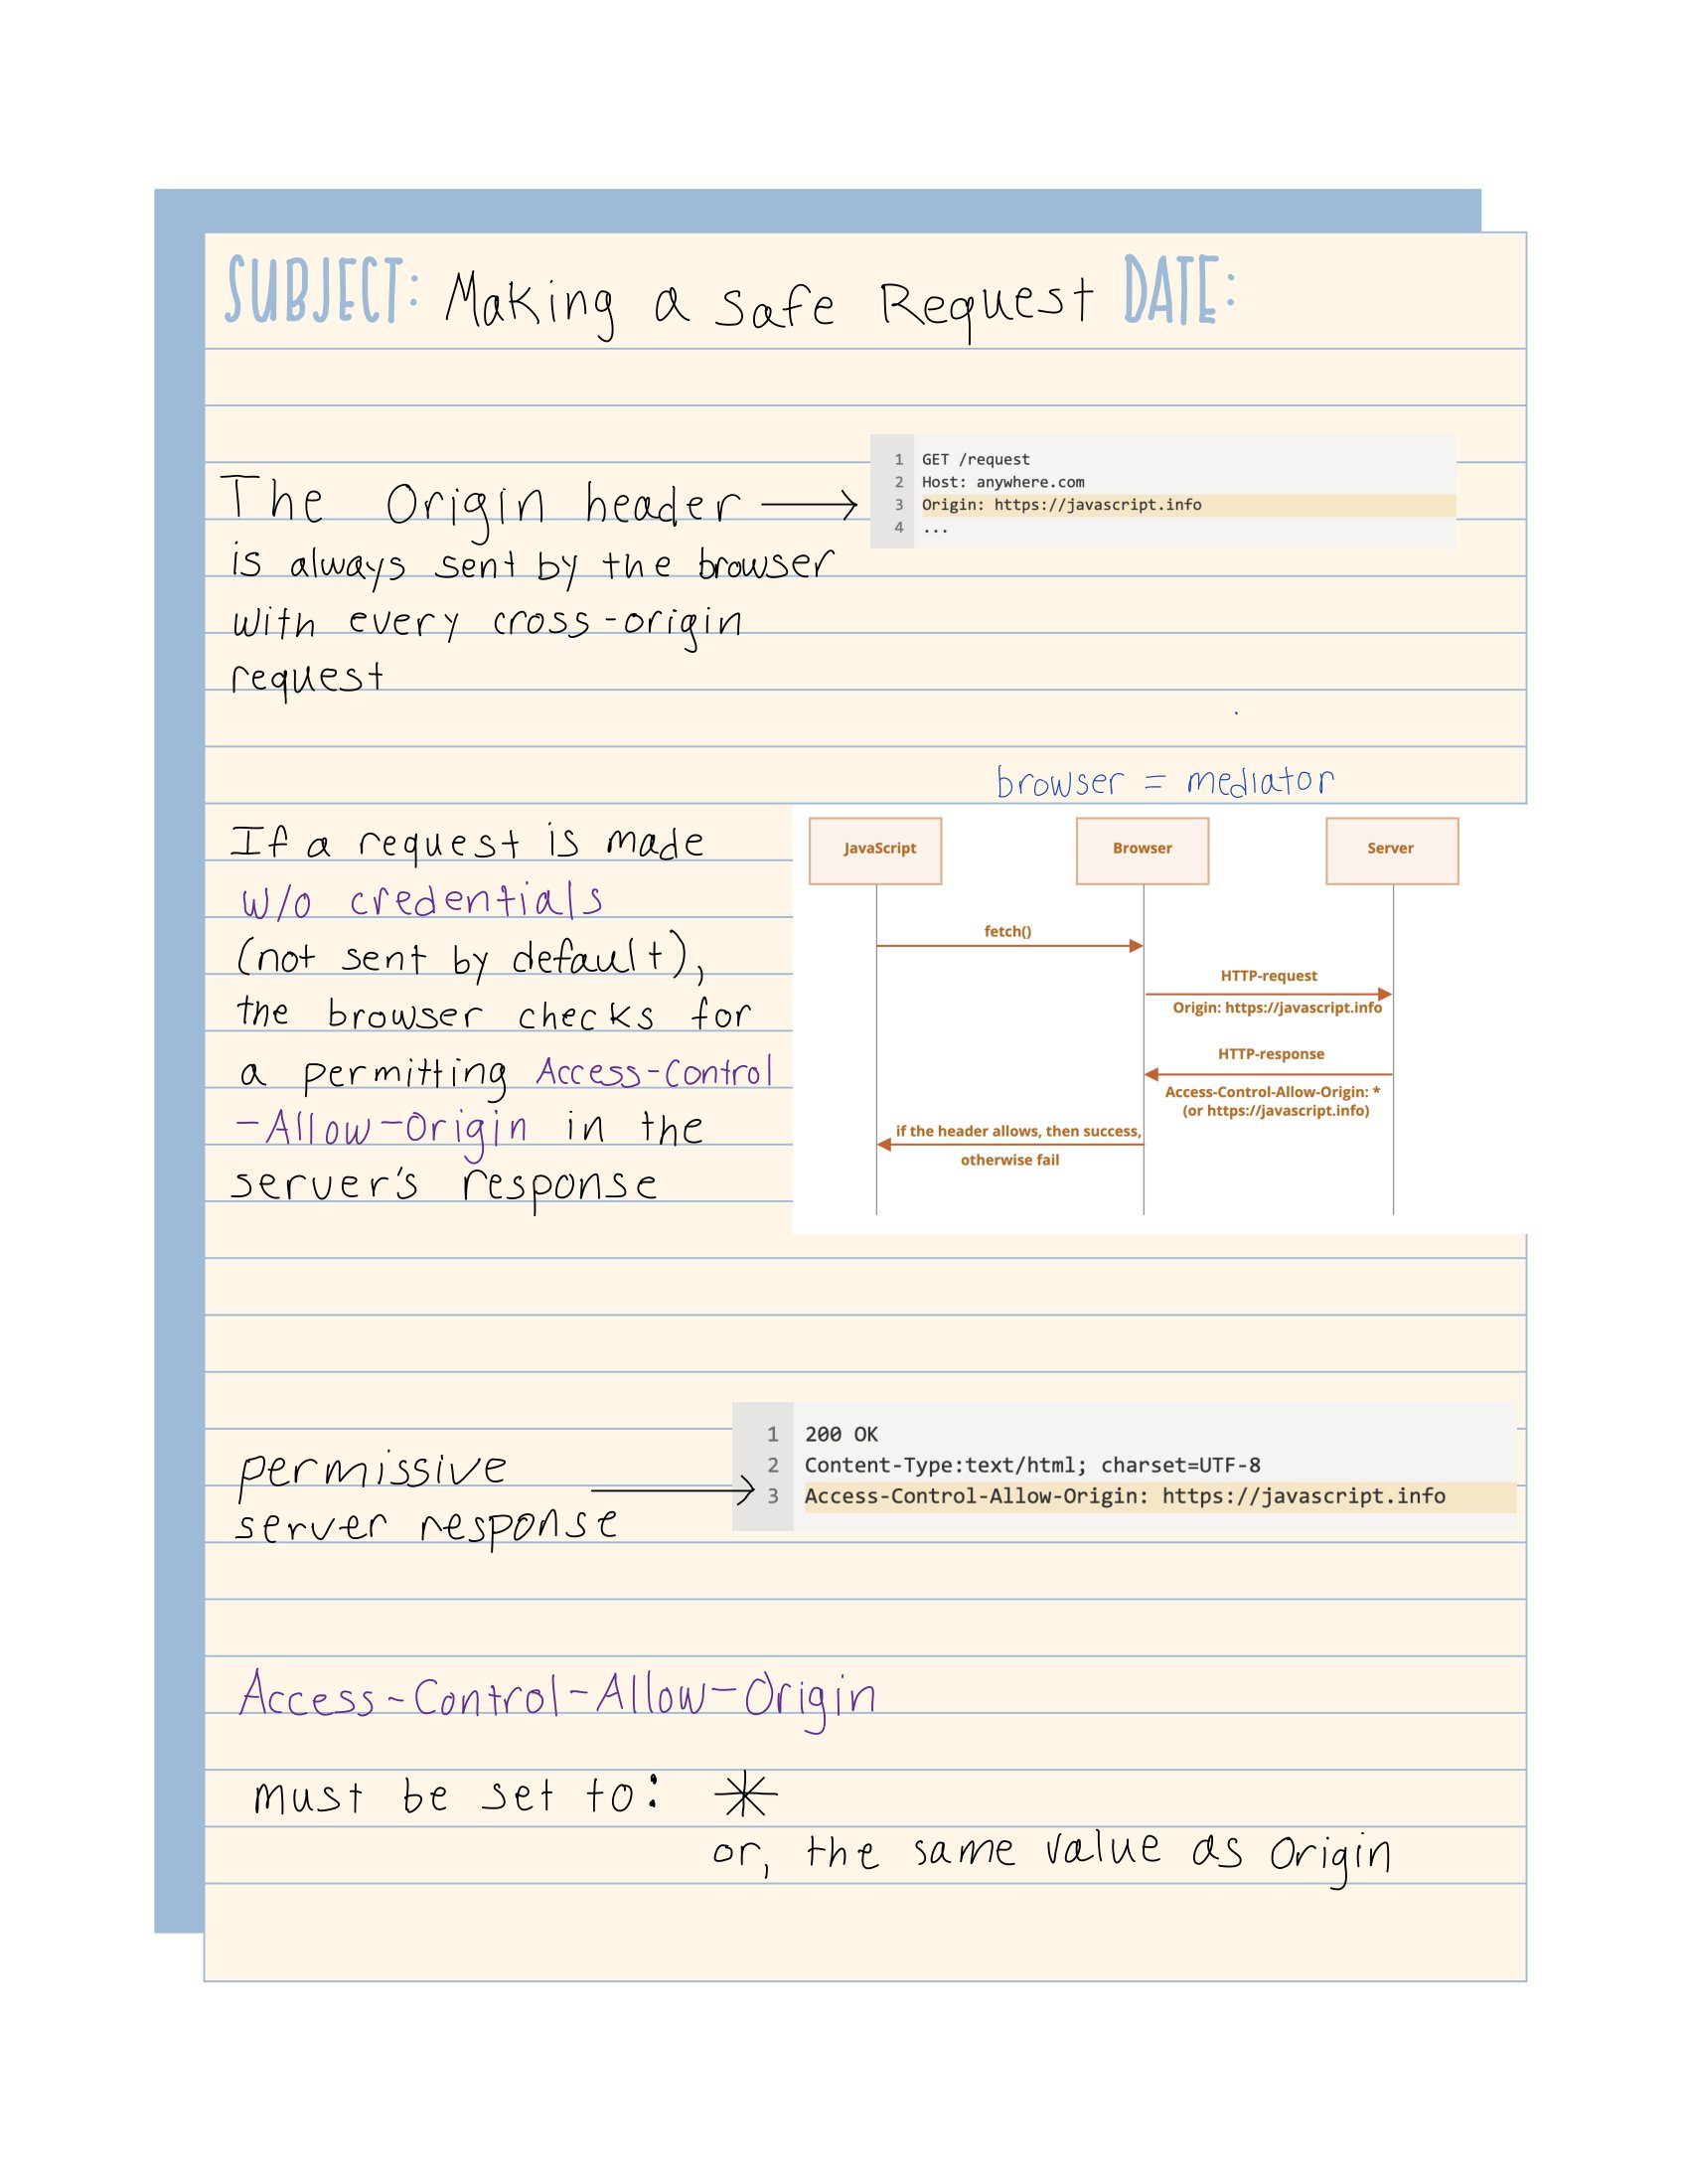 SUBJECT: Making a safe Request DATE:
1 GET /request
2 Host: anywhere.com
3 Origin: https://javascript.info
4 ...
The Origin header
is always sent by the browser
with every cross-origin
request
browser = mediator
If a request is made
w/o credentials
(not sent by default),
the browser checks for
a permitting Access-Control
-Allow-Origin in the
server's response
JavaScript Browser Server
fetch()
HTTP-request
Origin: https://javascript.info
HTTP-response
Access-Control-Allow-Origin: *
(or https://javascript.info)
if the header allows, then success,
otherwise fail
permissive
server response
1 200 OK
2 Content-Type:text/html; charset=UTF-8
3 Access-Control-Allow-Origin: https://javascript.info
Access-Control-Allow-Origin
must be set to: *
or, the same value as Origin